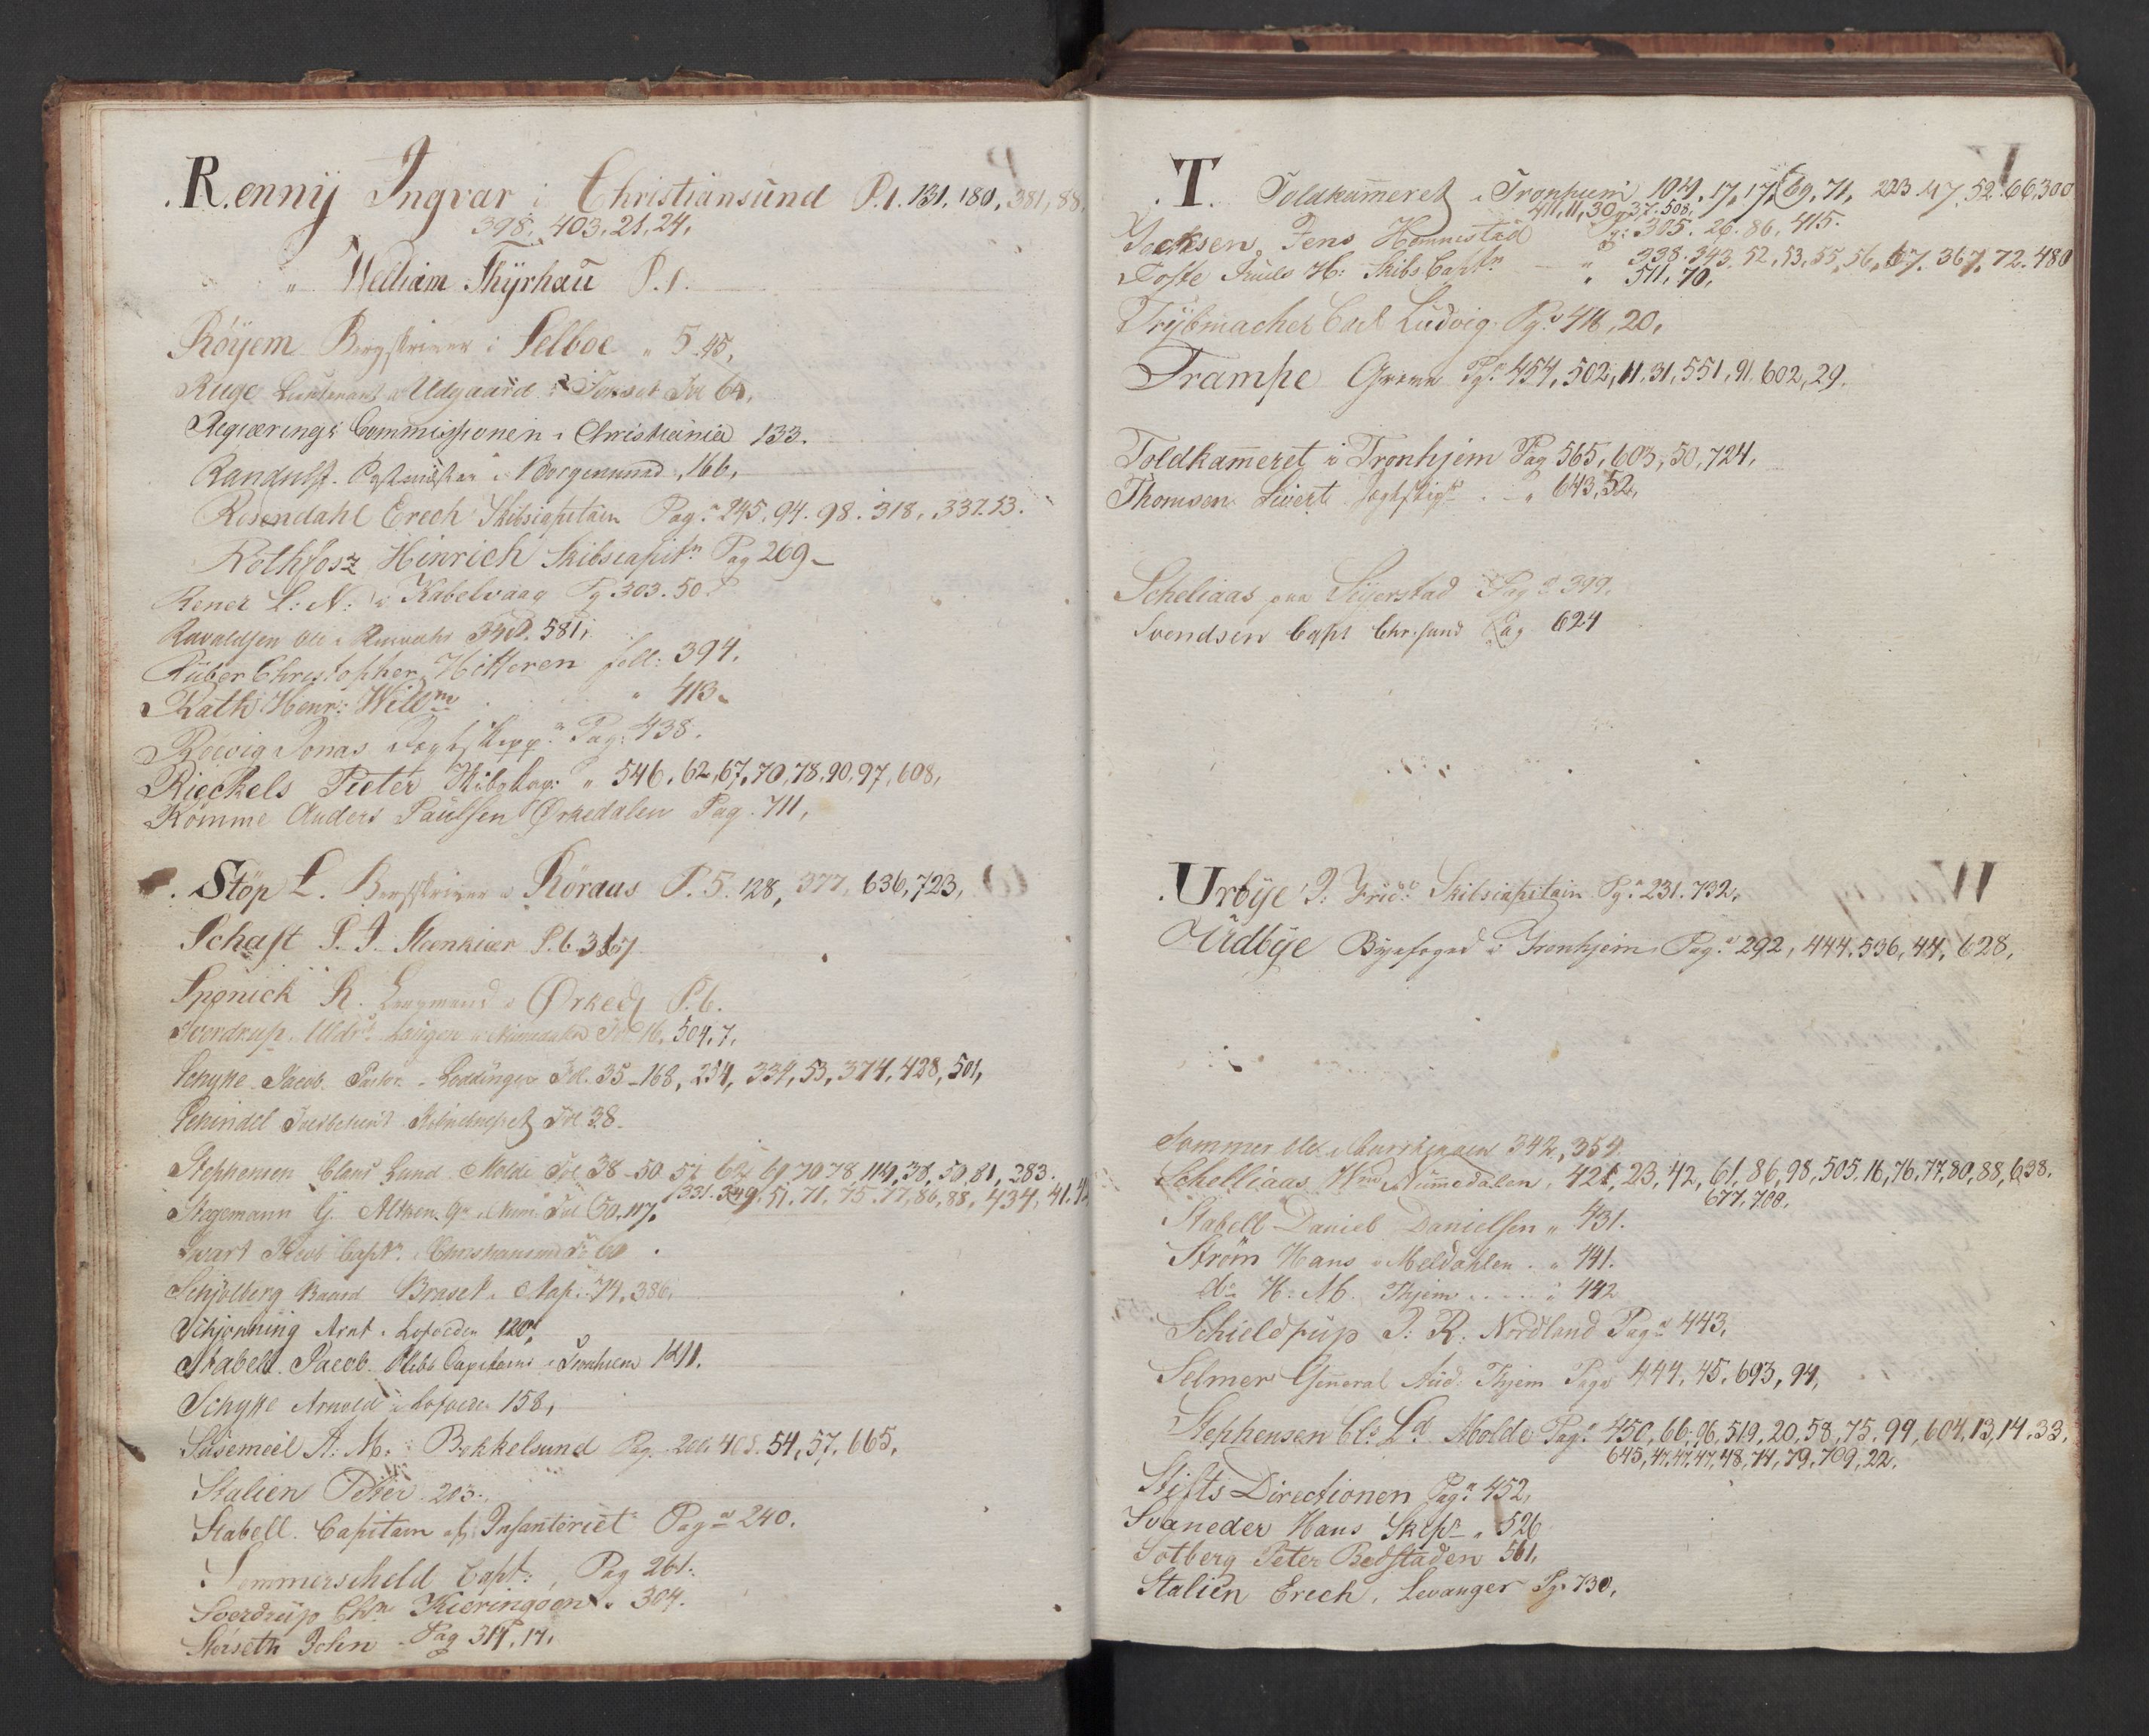 Rennij Ingvar i Christiansund P.1. 131, 180, 381, 88,
398, 403, 21, 24,
" William Thÿrhaü P.1.
Röÿem Bergskriver i Selboe " 5. 45,
Ruge Lieutenant Udgaard Fol 64,
Regierings Commissionen i Christiania 133.
Randulf. Postmester 166,
Risendahl Erech Skibscapitain Pag. 245, 94. 98. 318, 337. 53.
Rothfosz Hinrich Skibscapitn Pag 269
Rener L: N: i Kabelvaag Pg 303. 50
Ravaldsen Ole 581,
Rüber Christopher Hitteren foll: 394,
Rath Henr: Willm " 413
Rolvig Jonas Pag: 438.
Rieckels Pieter " 546, 62, 67, 70, 78, 90, 97, 608,
Römme Anders Paulsen Ørkedalen Pag. 711,
Stöp L. Bergskriver i Röraas P. 5. 128, 377, 636, 723,
Schaft P. J. Steenkiær P. 6.
Sponick R. Ørked P. 6.
Sverdrup 16, 504, 7,
Schytte Jacob Pastor Leddingen Fol. 35 - 168, 254, 334, 53, 374, 428, 501,
Schindel Fol 38.
Stephensen Claus Lund Molde Fol 38 - 50 57 62 69 70 78, 114, 38, 50, 81, 283.
331. 349, 51, 71, 75. 77, 86, 88, 434, 41,
Stegemann G. Fol 60, 117,
Svart Jacob Capt. Christiansund 60
Schjölberg Baard 74, 386,
Schjønning Arnt i Lofoden 120,
Stabell Jacob Skibs Capitain i Tronhiem 141,
Schytte Arnold i Lofoden 158,
Susemeel A: M: Bekkelsund Pg. 54, 57, 665,
Stalien Peter 203.
Stabell. Capitain af Infanteriet Pag 240.
Sommerscheld Capt: Pag 261.
Sverdrup Chn Kieringøen " 304.
Störseth John Pag 314, 17,
T. Toldkammeret i Tronhiem 104, 17, 17, 69, 71, 223 47, 52, 66, 300
411, 11, 30, 37, 508,
Jens Hommestad Pg: 305. 26. 86, 415.
Tofte Juuls H: Skibs Captn " 338. 343. 52, 53, 55, 56, 67, 367, 72. 480
" 511, 70,
Trÿbmacher Carl Ludvig Pg. 418, 20,
Trampe Greve Pg. 454, 502, 11, 31, 551, 91, 602, 29.
Toldkammeret i Tronhjem Pag 565, 603, 50, 724,
Thomsen Sivert " 643, 52,
Scheliaas paa Pag 399,
Svendsen Capt Chr.sund Pag 624
Urbÿe P: Frid: Skibscapitain Pg. 231. 732,
Udbÿe Byefoged i Tronhjem Pag. 292, 444. 536, 44, 628,
Sommer Ole 342, 354.
Schelliaas Nummedalen, 421, 23, 42, 61, 86, 98, 505, 16, 76, 77, 80, 88, 638,
677, 700,
Stabell Daniel Danielsen " 431.
Strøm Hans i Meldahlen " 441.
do H. M. Thjem " 442
Schieldrup P: R. Nordland Pag 443,
Selmer General Aud: Thjem Pag 444, 45, 693, 94,
Stephensen Cl. Ld Molde Pag. 450, 66, 96, 519, 20, 58, 75, 99, 604, 13, 14, 33,
645, 47, 47, 47, 48, 74, 79, 709, 22,
Stifts Directionen Pag. 452,
Svaneder Hans Skipr " 526
Sotberg Peter Bedstaden 561,
Stalien Erech, Levanger Pg. 730,